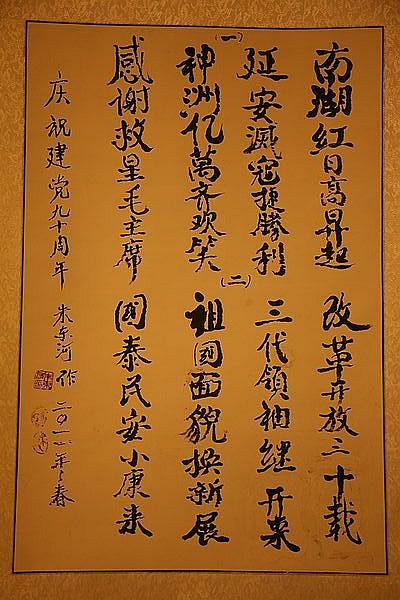 (一)
南湖红日高昇起
延安滅寇报勝利
神洲亿萬齐欢笑
感谢救星毛主席
(二)
改革开放三十载
三代領袖继开来
祖國面貌换新展
國泰民安小康来
庆祝建党九十周年 朱东河作 二〇一一年之春